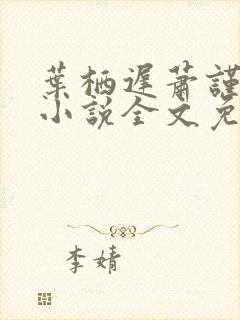 葉栖遲蕭謹
小說全文免
李婧